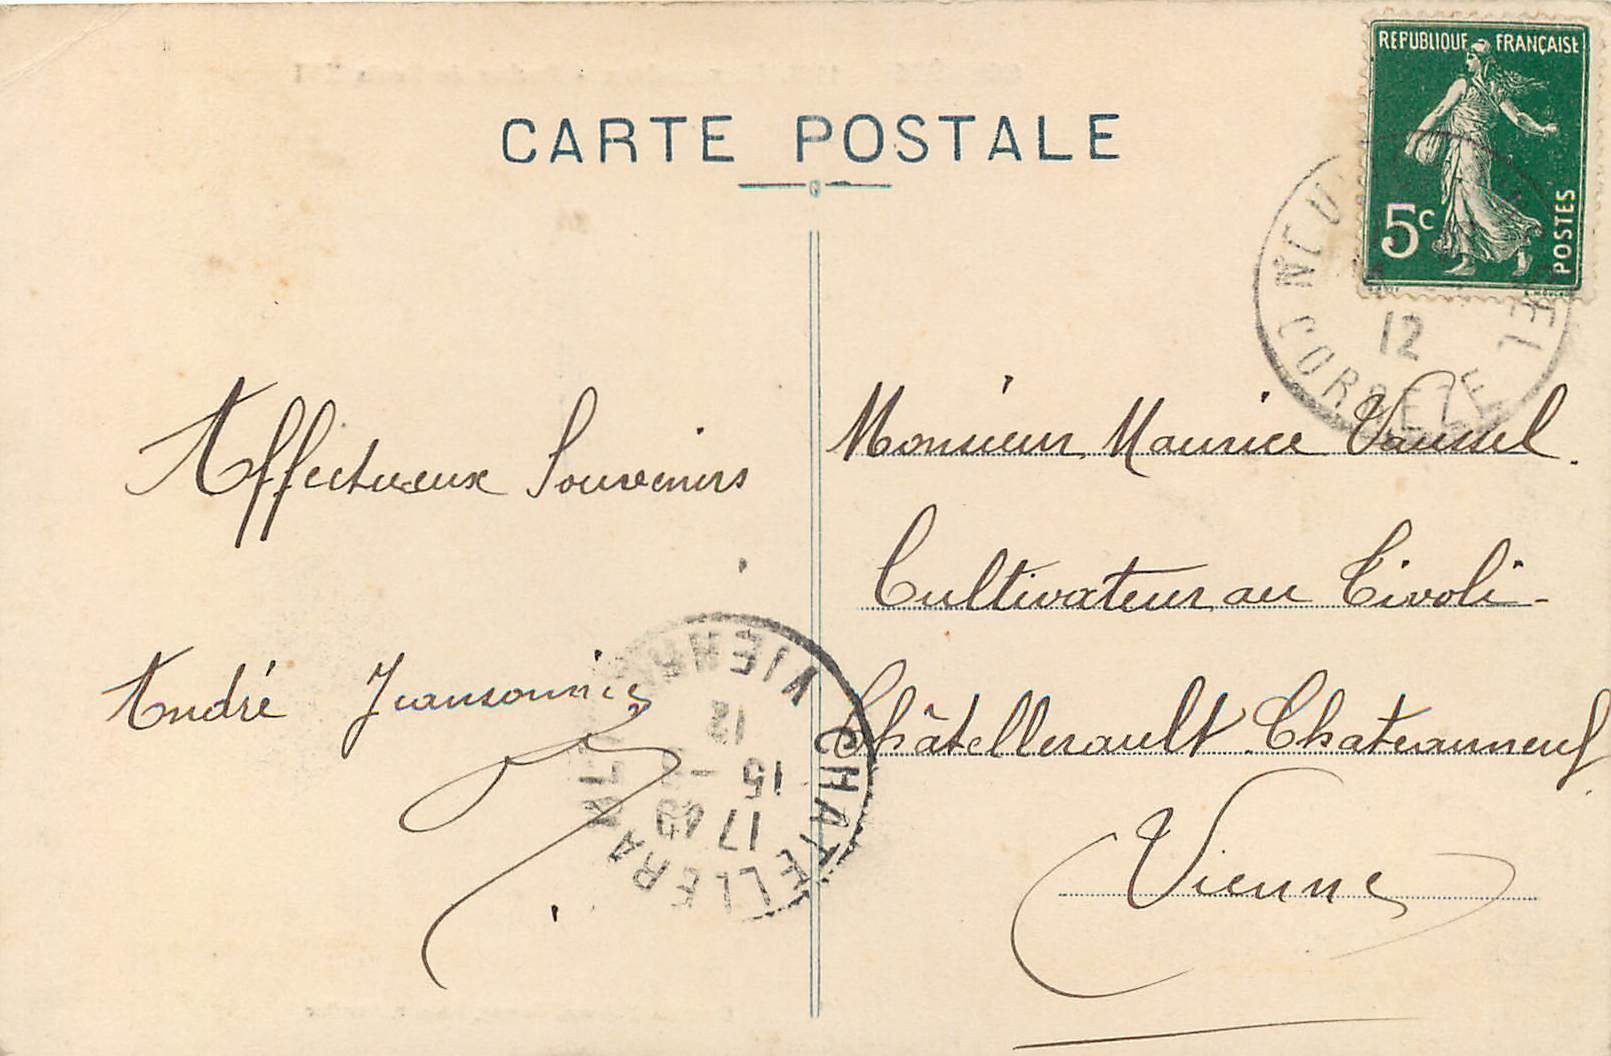 CARTE POSTALE
REPUBLIQUE FRANÇAISE
5c
POSTES
12
CORREZE
Affectueux Souvenirs
André
Monsieur Maurice Vaussel.
Cultivateur au Tivoli -
Châtellerault Chateauneuf
Vienne
CHATELLERAULT
VIENNE
17
15
12